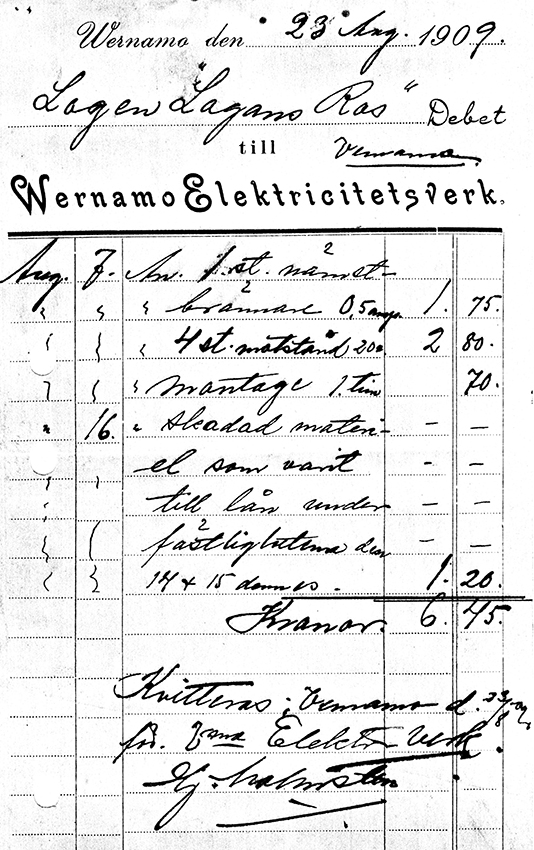 Wernamo den 23 Aug. 1909.
Logen "Lagans Ros" Debet
till Vernamo
Wernamo Elektricitetsverk.
Aug. 7. An. 1 st. nämst-
" " " brännare 0,5 amp. 1. 75.
" " " 4 st. motstånd 20 2 80.
" " " montage 1. tim 70.
" 16. " skadad materi- – –
" " el som varit – –
" till lån under – –
" " fästligheterna den – –
" " 14 & 15 dennes. 1. 20.
Kronor. 6. 45.
Kvitteras; Vernamo d. 23/8 09
för. Vrna Elektr Verk.
Hj. Malmsten